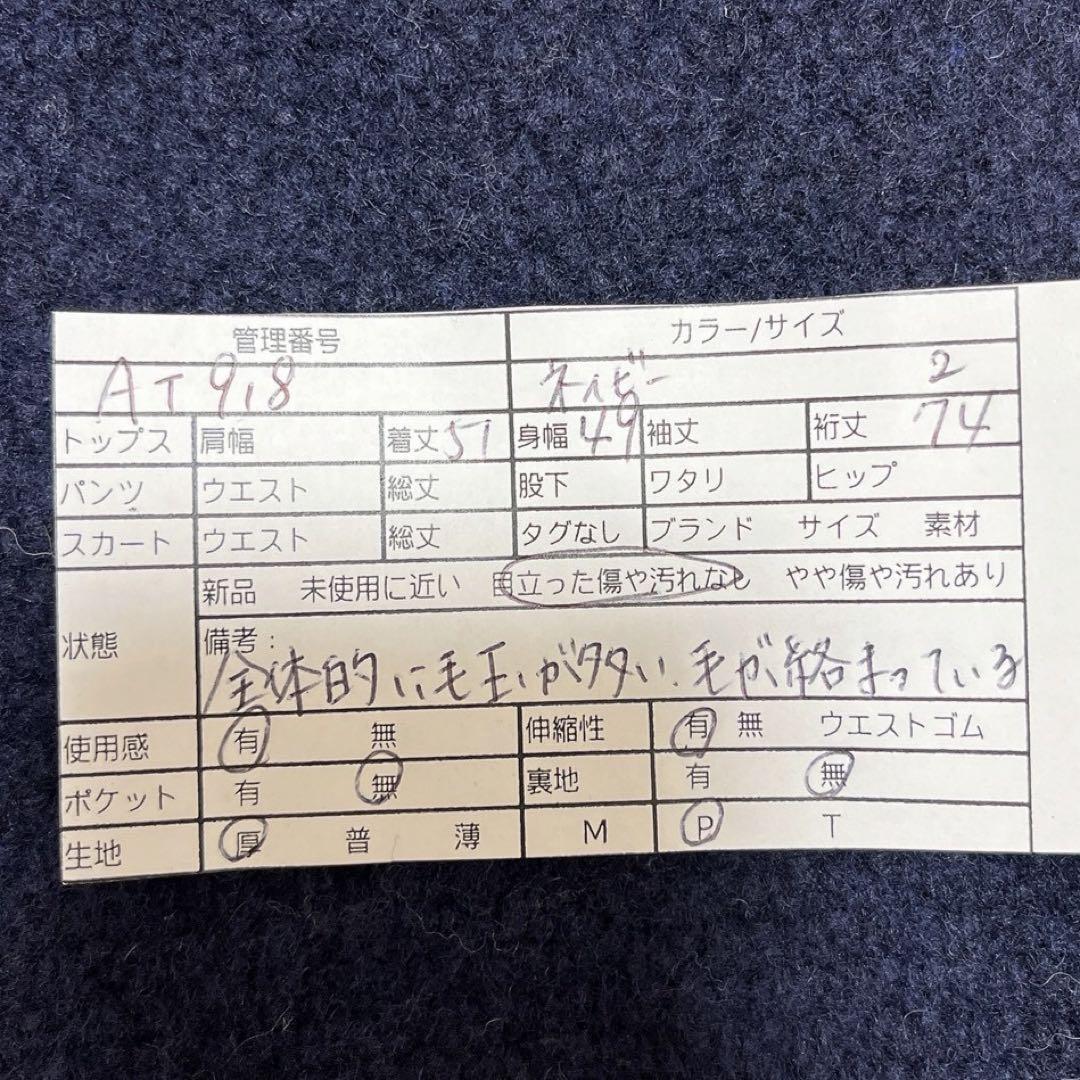 管理番号 カラー/サイズ
AT 918 ネイビー 2
トップス 肩幅 着丈 57 身幅 49 袖丈 裄丈 74
パンツ ウエスト 総丈 股下 ワタリ ヒップ
スカート ウエスト 総丈 タグなし ブランド サイズ 素材
新品 未使用に近い 目立った傷や汚れなし やや傷や汚れあり
状態 備考:
全体的に毛玉が多い、毛が絡まっている
使用感 有 無 伸縮性 有 無 ウエストゴム
ポケット 有 無 裏地 有 無
生地 厚 普 薄 M P T